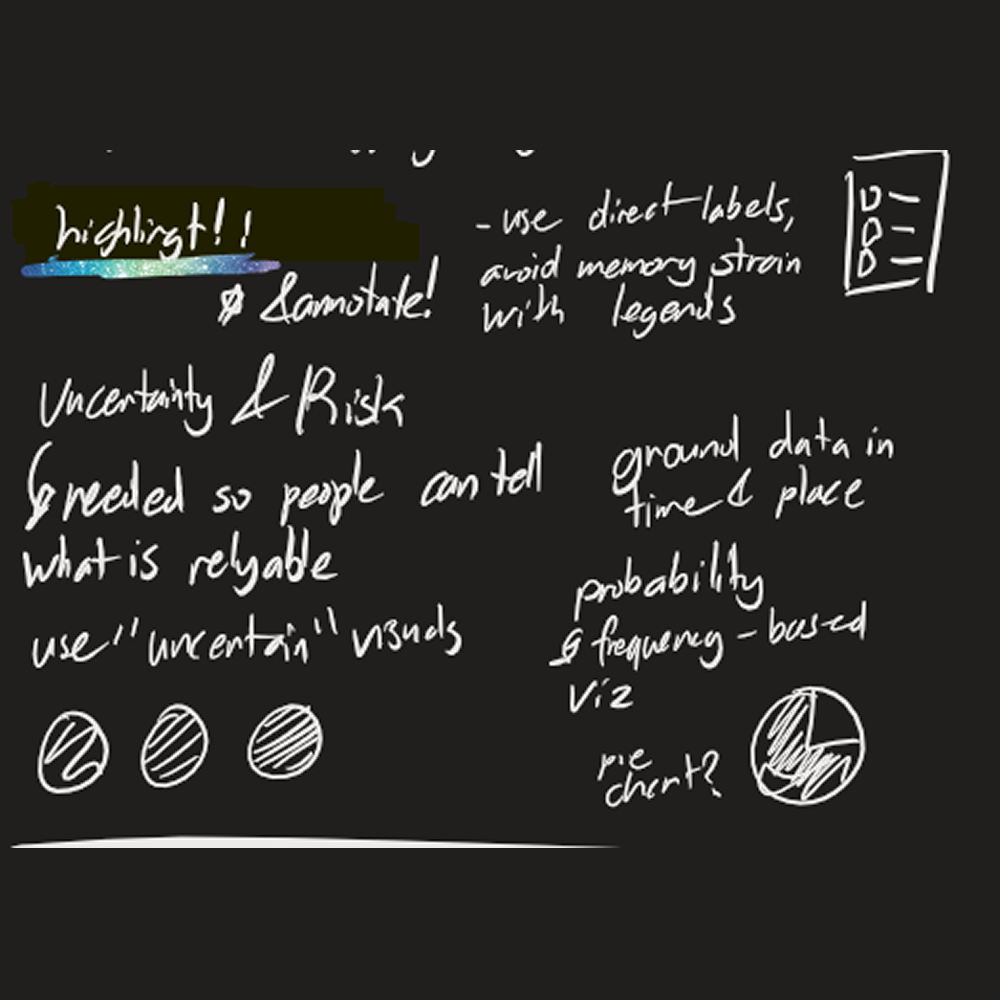 highlingt!!
& annotate!
- use direct labels,
avoid memory strain
with legends
Uncertainty & Risk
needed so people can tell
what is relyable
use "uncertain" visuals
ground data in
time & place
probability
& frequency-based
viz
pie
chart?